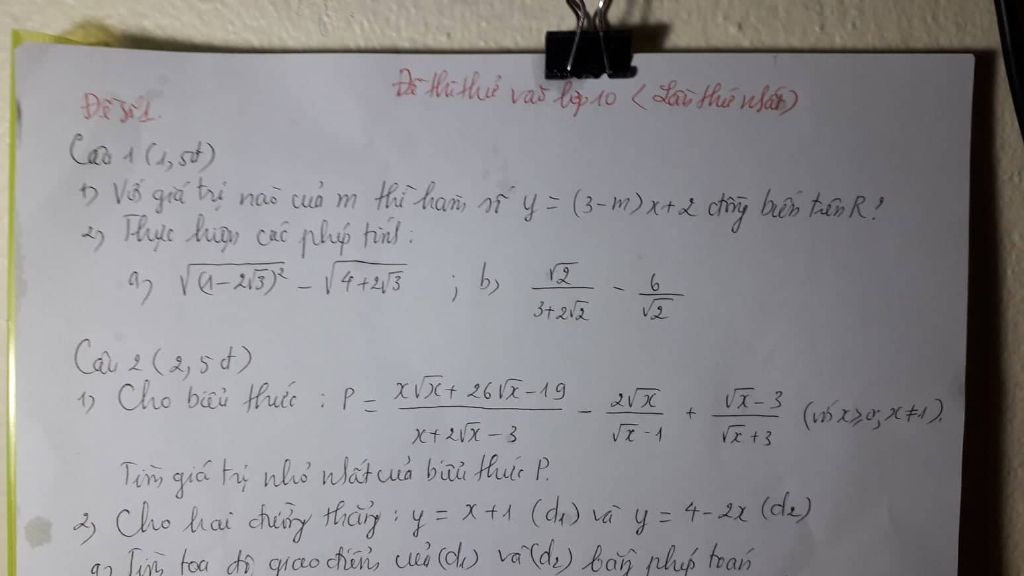 Đề thi thử vào lớp 10 (Lần thứ nhất)
Đề số 1.
Câu 1 (1,5đ)
1) Với giá trị nào của m thì hàm số y = (3-m)x+2 đồng biến trên R?
2) Thực hiện các phép tính:
a) √(1-2√3)² - √4+2√3 ; b) √2/(3+2√2) - 6/√2
Câu 2 (2,5đ)
1) Cho biểu thức : P = (x√x + 26√x - 19)/(x+2√x-3) - 2√x/(√x-1) + (√x-3)/(√x+3) (với x≥0; x≠1).
Tìm giá trị nhỏ nhất của biểu thức P.
2) Cho hai đường thẳng : y = x+1 (d1) và y = 4-2x (d2)
a) Tìm tọa độ giao điểm của (d1) và (d2) bằng phép toán